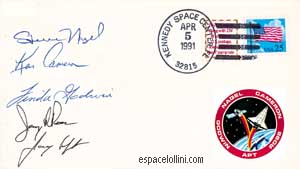 Steve Nagel
Ken Cameron
Linda Godwin
Jerry Ross
Jay Apt
KENNEDY SPACE CENTER, FL
APR
5
1991
32815
25
NAGEL CAMERON
GODWIN APT ROSS
espacelollini.com